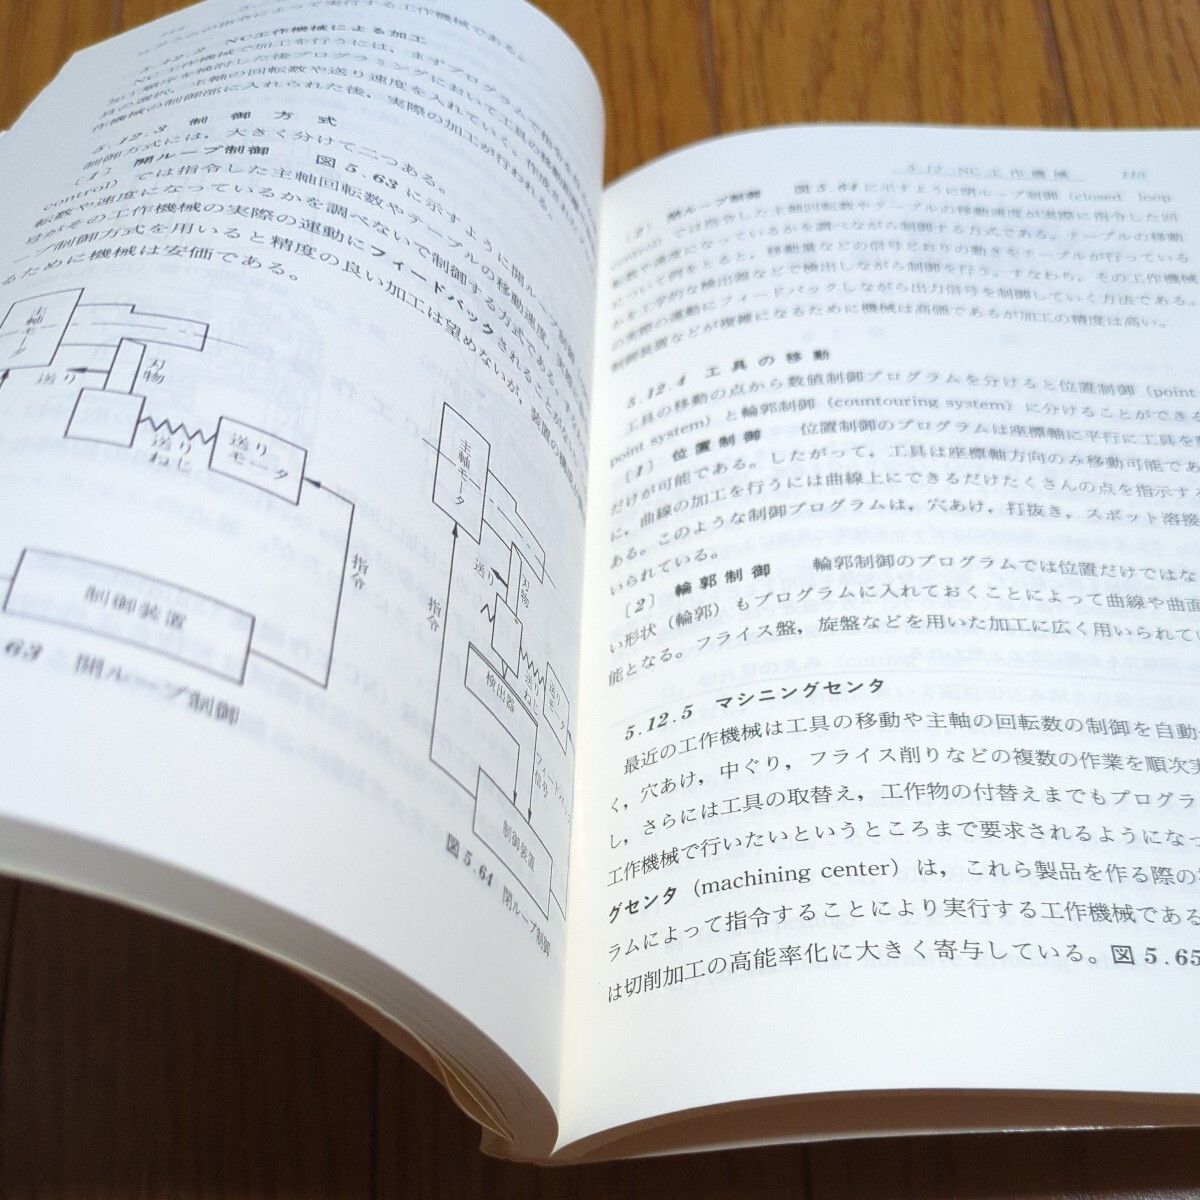 グラムの指令によって実行する工作機械である。
5.12.2 NC工作機械による加工
NC工作機械で加工を行うには，まずプログラムで指令
加工順序を検討した後プログラミングにおいて工具の移動
具の選択，主軸の回転数や送り速度を入れていく。作成
作機械の制御部に入れられた後，実際の加工が行われる。
5.12.3 制御方式
制御方式には，大きく分けて二つある。
〔1〕 開ループ制御 図5.63に示すように開ループ
control）では指令した主軸回転数やテーブルの移動速度
転数や速度になっているかを調べないで制御する方式である。
号がその工作機械の実際の運動にフィードバックされることがない
ープ制御方式を用いると精度の良い加工は望めないが，装置の
るために機械は安価である。
主軸モータ
刃物
送り
送りねじ
送りモータ
指令
制御装置
63 開ループ制御
主軸モータ
刃物
送り
指令
送りねじ
検出器
制御装置
図5.64 閉ループ制御
5.12 NC工作機械 115
〔2〕 閉ループ制御 図5.64に示すように閉ループ制御（closed loop
control）では指令した主軸回転数やテーブルの移動速度が実際に指令した回
転数や速度になっているかを調べながら制御する方式である。テーブルの移動
について例をとると，移動量などの信号どおりの動きをテーブルが行っている
かを工学的な検出器などで検出しながら制御を行う。すなわち，その工作機械
の実際の運動にフィードバックしながら出力信号を制御していく方法である。
制御装置などが複雑になるために機械は高価であるが加工の精度は高い。
5.12.4 工具の移動
工具の移動の点から数値制御プログラムを分けると位置制御（point
point system）と輪郭制御（countouring system）に分けることができる
〔1〕 位置制御 位置制御のプログラムは座標軸に平行に工具を
だけが可能である。したがって，工具は座標軸方向のみ移動可能であ
に，曲線の加工を行うには曲線上にできるだけたくさんの点を指示す
ある。このような制御プログラムは，穴あけ，打抜き，スポット溶接
いられている。
〔2〕 輪郭制御 輪郭制御のプログラムでは位置だけではな
い形状（輪郭）もプログラムに入れておくことによって曲線や曲面
能となる。フライス盤，旋盤などを用いた加工に広く用いられて
5.12.5 マシニングセンタ
最近の工作機械は工具の移動や主軸の回転数の制御を自動
く，穴あけ，中ぐり，フライス削りなどの複数の作業を順次実
し，さらには工具の取替え，工作物の付替えまでもプログラ
工作機械で行いたいというところまで要求されるようになっ
グセンタ（machining center）は，これら製品を作る際の
ラムによって指令することにより実行する工作機械である
は切削加工の高能率化に大きく寄与している。図5.65